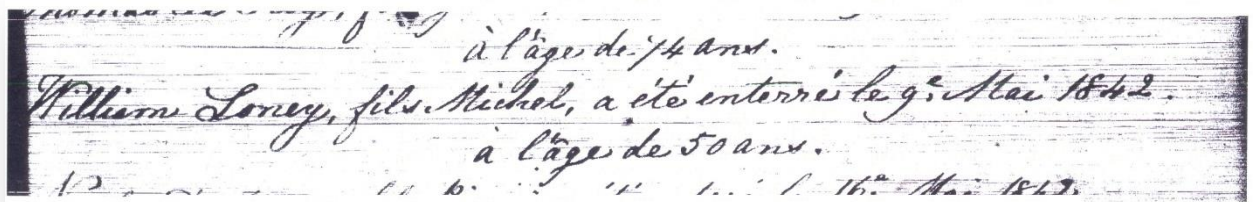 à l'âge de 74 ans.
William Loney, fils Michel, a été enterré le 9e. Mai 1842.
à l'âge de 50 ans.
16e Mai 1842